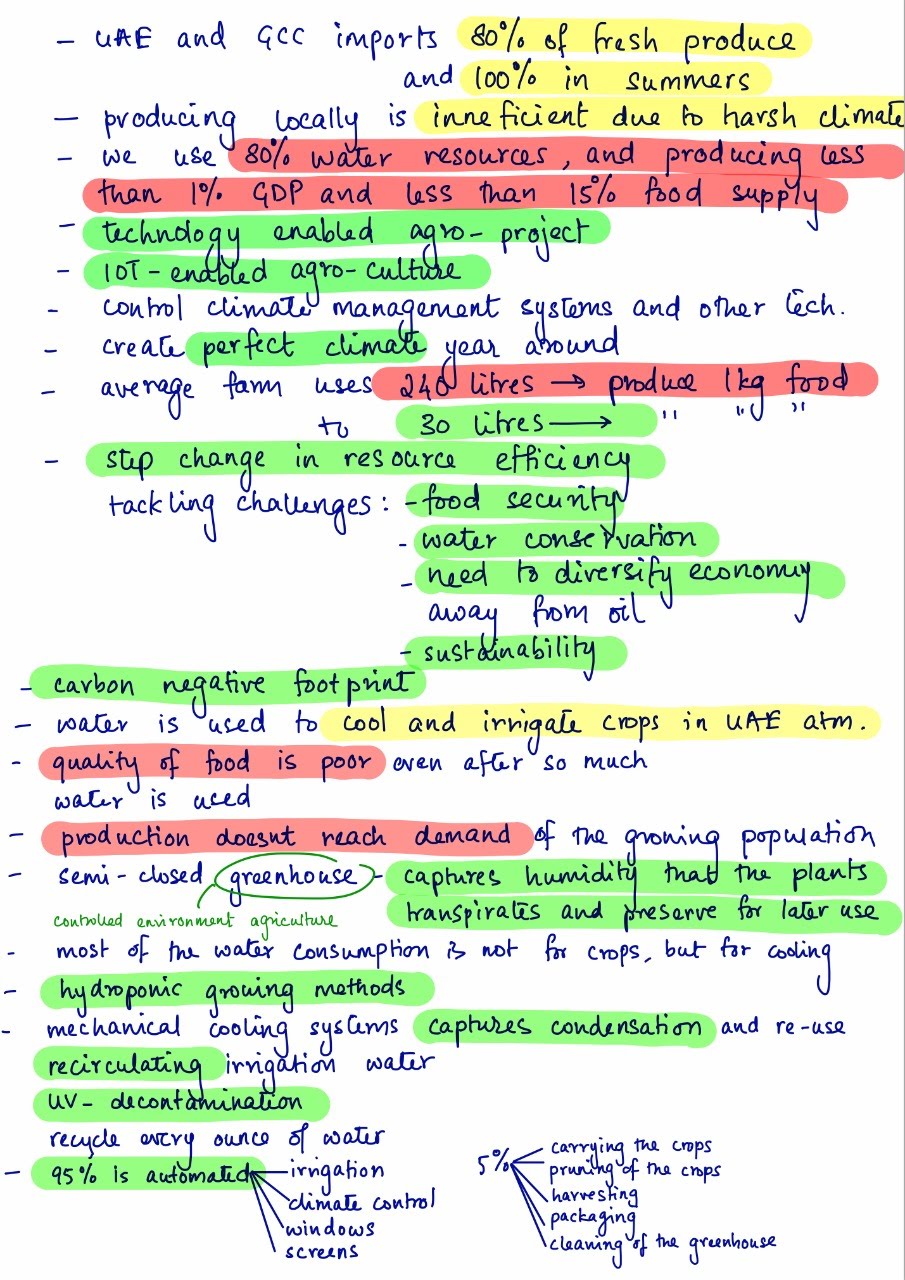 - UAE and GCC imports 80% of fresh produce
and 100% in summers
- producing locally is inneficient due to harsh climate
- we use 80% water resources, and producing less
than 1% GDP and less than 15% food supply
- technology enabled agro-project
- IOT-enabled agro-culture
- control climate management systems and other tech.
- create perfect climate year around
- average farm uses 240 litres → produce 1kg food
to 30 litres → " " "
- step change in resource efficiency
tackling challenges: - food security
- water conservation
- need to diversify economy
away from oil
- sustainability
- carbon negative footprint
- water is used to cool and irrigate crops in UAE atm.
- quality of food is poor even after so much
water is used
- production doesnt reach demand of the growing population
- semi-closed greenhouse - captures humidity that the plants
controlled environment agriculture
transpirates and preserve for later use
- most of the water consumption is not for crops, but for cooling
- hydroponic growing methods
- mechanical cooling systems captures condensation and re-use
recirculating irrigation water
UV-decontamination
recycle every ounce of water
- 95% is automated
irrigation
climate control
windows
screens
5%
carrying the crops
pruning of the crops
harvesting
packaging
cleaning of the greenhouse